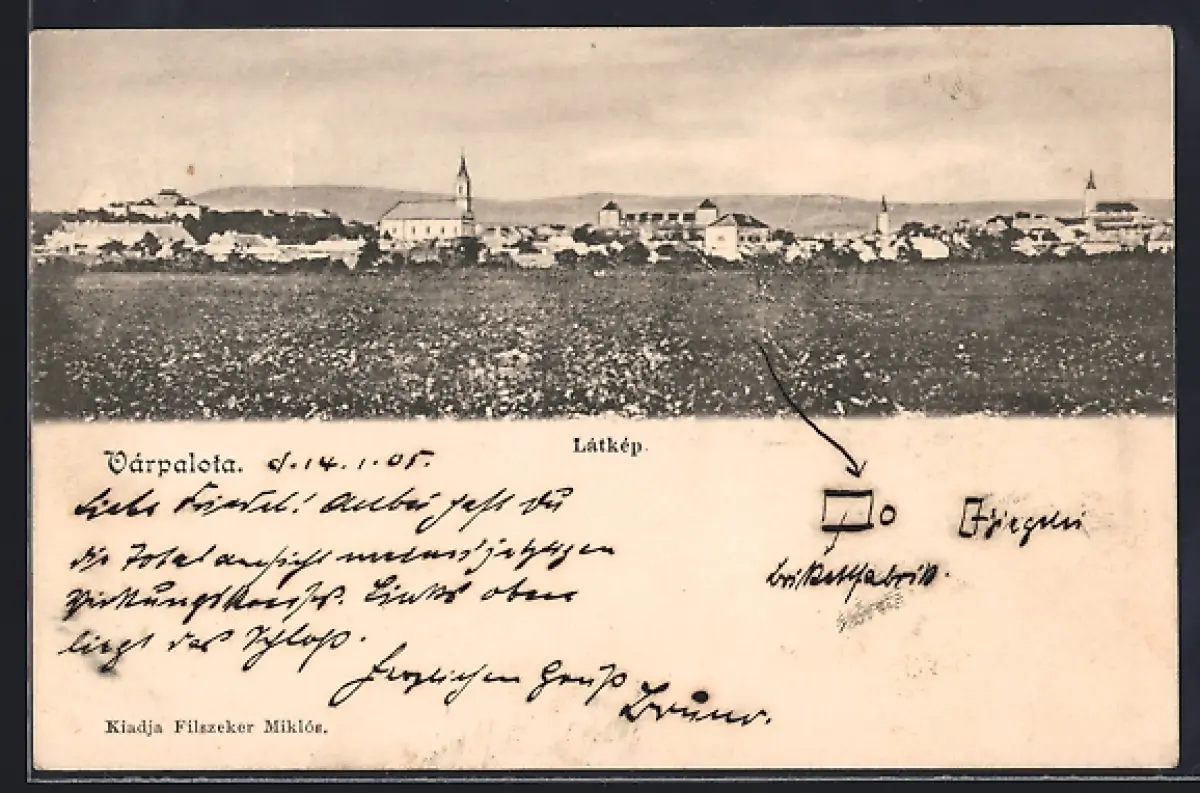 Látkép.
Várpalota. d. 14.1.05.
Liebe Friedel! Anbei hast Du
die Totalansicht meines jetzigen
Wirkungskreises. Links oben
liegt das Schloß.
Herzlichen Gruß
Bruno.
Ziegelei
Brikettfabrik.
Kiadja Filszeker Miklós.